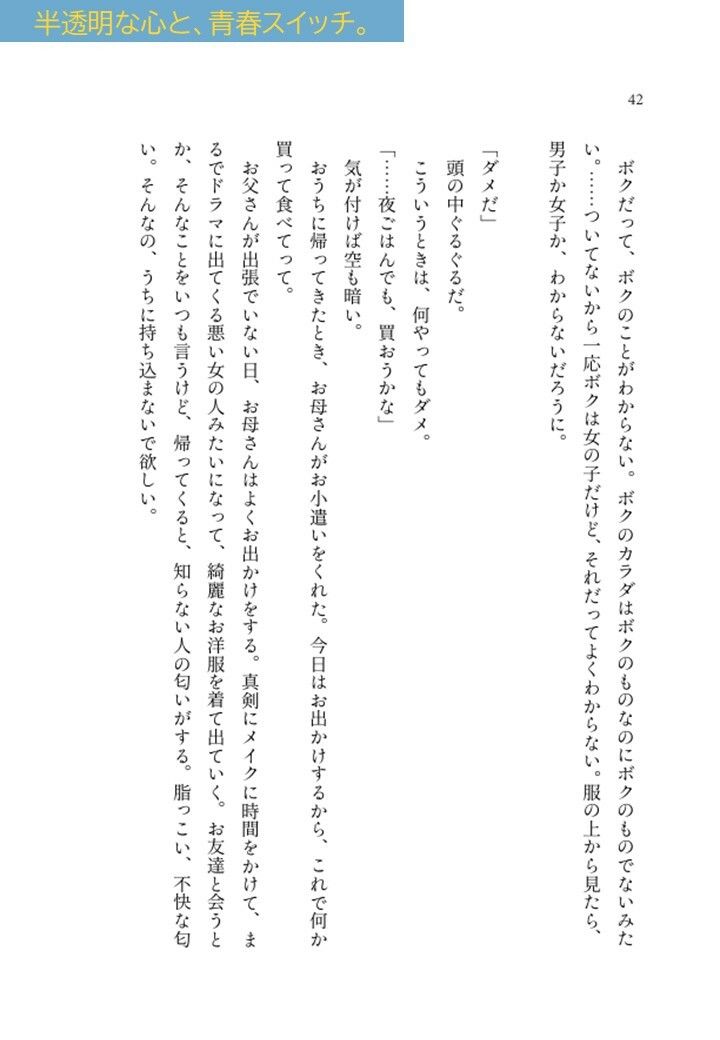 半透明な心と、青春スイッチ。
42
ボクだって、ボクのことがわからない。ボクのカラダはボクのものなのにボクのものでないみた
い。……ついてないから一応ボクは女の子だけど、それだってよくわからない。服の上から見たら、
男子か女子か、わからないだろうに。
「ダメだ」
頭の中ぐるぐるだ。
こういうときは、何やってもダメ。
「……夜ごはんでも、買おうかな」
気が付けば空も暗い。
おうちに帰ってきたとき、お母さんがお小遣いをくれた。今日はお出かけするから、これで何か
買って食べてって。
お父さんが出張でいない日、お母さんはよくお出かけをする。真剣にメイクに時間をかけて、ま
るでドラマに出てくる悪い女の人みたいになって、綺麗なお洋服を着て出ていく。お友達と会うと
か、そんなことをいつも言うけど、帰ってくると、知らない人の匂いがする。脂っこい、不快な匂
い。そんなの、うちに持ち込まないで欲しい。